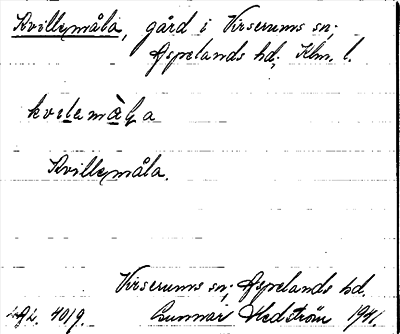 Kvillemåla, gård i Virserums sn;
Aspelands hd; Klm. l.
kvilemåla
Kvillemåla.
Virserums sn; Aspelands hd.
4019. Gunnar Hedström 1941.